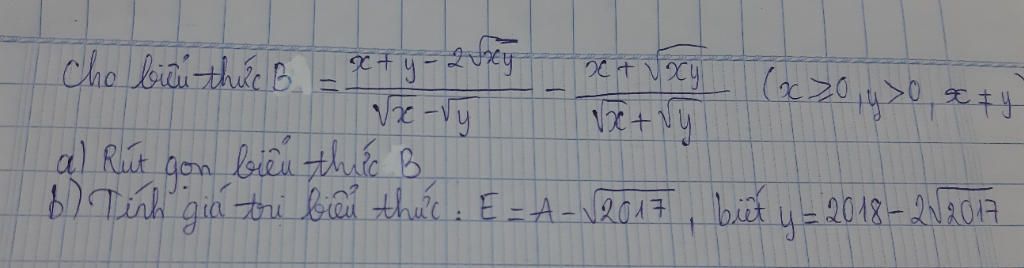 Cho biểu thức B = \frac{x + y - 2\sqrt{xy}}{\sqrt{x} - \sqrt{y}} - \frac{x + \sqrt{xy}}{\sqrt{x} + \sqrt{y}} (x ≥ 0, y > 0, x ≠ y)
a) Rút gọn biểu thức B
b) Tính giá trị biểu thức : E = A - \sqrt{2017}, biết y = 2018 - 2\sqrt{2017}